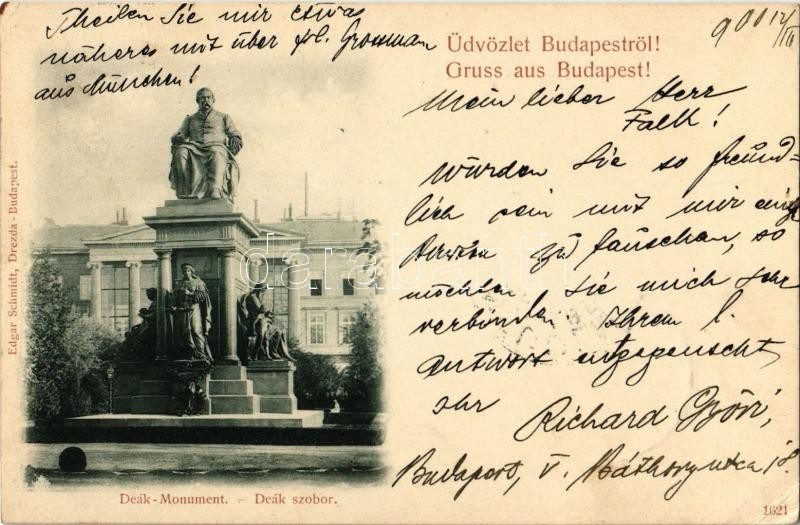 Theilen Sie mir etwas
näheres mit über frl. Grossman
aus München!
Üdvözlet Budapestről!
Gruss aus Budapest!
900 12/III
Mein lieber Herr
Falk!
Würden Sie so freund=
lich sein mit mir einige
zu tauschen, so
möchten Sie mich sehr
verbinden. Ihrem l.
Antwort entgegenseht
Ihr Richard Győri,
Budapest, V. Báthory utca 18.
Edgar Schmidt, Drezda - Budapest.
Deák-Monument. – Deák szobor.
1621
darabanth